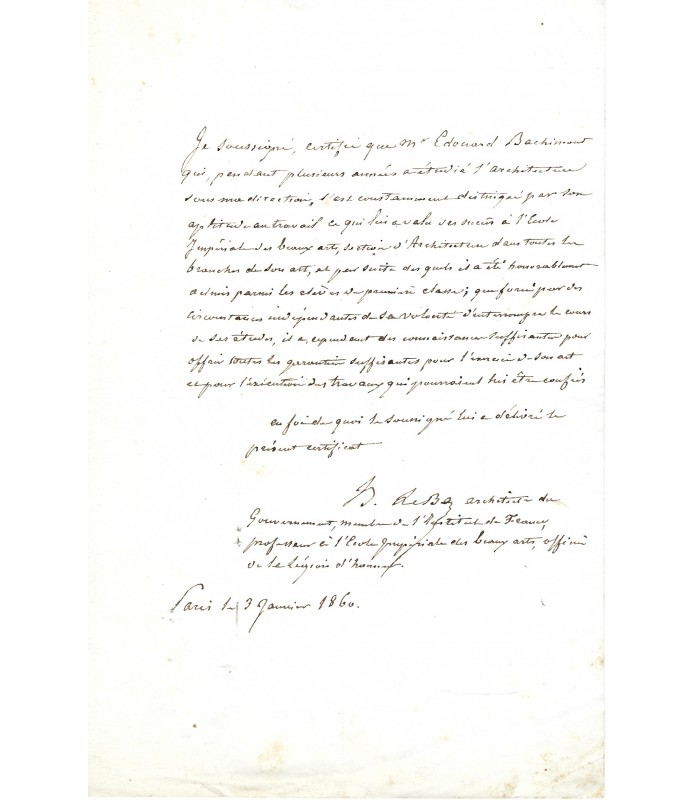 Je soussigné, certifie que Mr Edouard Bachimont
qui, pendant plusieurs années a étudié l'architecture
sous ma direction, s'est constamment distingué par son
aptitude au travail ce qui lui a valu des succès à l'Ecole
Impériale des beaux arts, section d'Architecture dans toutes les
branches de son art, et par suite des quels il a été honorablement
admis parmi les élèves de première classe; que forcé par des
circonstances indépendantes de sa volonté d'interrompre le cours
de ses études, il a cependant des connaissances suffisantes pour
offrir toutes les garanties suffisantes pour l'exercice de son art
et pour l'exécution des travaux qui pourraient lui être confiés
en foi de quoi le soussigné lui a délivré le
présent certificat
H. LeBas architecte du
Gouvernement, membre de l'Institut de France,
professeur à l'Ecole Impériale des beaux arts, officier
de la Légion d'honneur.
Paris le 3 Janvier 1860.